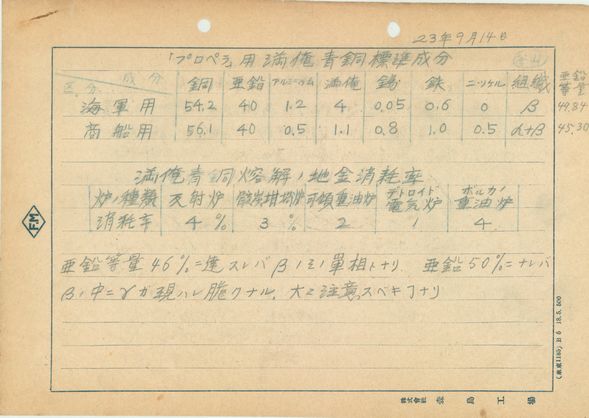 23年9月14日
「プロペラ」用満俺青銅標準成分
区分 成分 銅 亜鉛 アルミニウム 満俺 錫 鉄 ニッケル 組織 亜鉛等量
海軍用 54.2 40 1.2 4 0.05 0.6 0 β 49.84
商船用 56.1 40 0.5 1.1 0.8 1.0 0.5 α+β 45.30
満俺青銅熔解ノ地金消耗率
炉ノ種類 反射炉 骸炭坩堝炉 可傾重油炉 デトロイド電気炉 ボルカノ重油炉
消耗率 4% 3% 2 1 4
亜鉛等量46%ニ達スレバβノミノ単相トナリ 亜鉛50%ニナレバ
βノ中ニγが現ハレ脆クナル、大ニ注意スベキコトナリ
FM
(東京1180) B6 18.5. 500
株式會社 森島工場